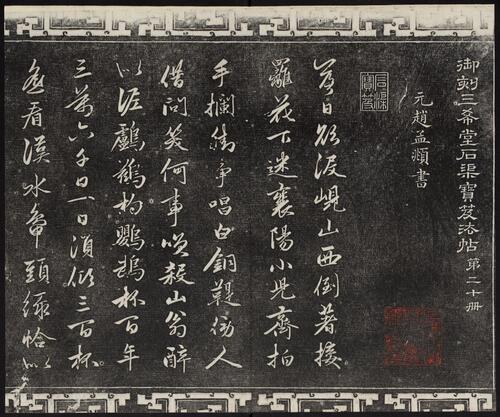 御刻三希堂石渠寶笈法帖 第二十冊
元趙孟頫書
石渠寶笈
落日欲没峴山西倒著接
䍦花下迷襄陽小兒齊拍
手攔街爭唱白銅鞮傍人
借問笑何事笑殺山翁醉
似泥鸕鷀杓鸚鵡杯百年
三萬六千日一日須傾三百杯
遙看漢水鴨頭綠恰似